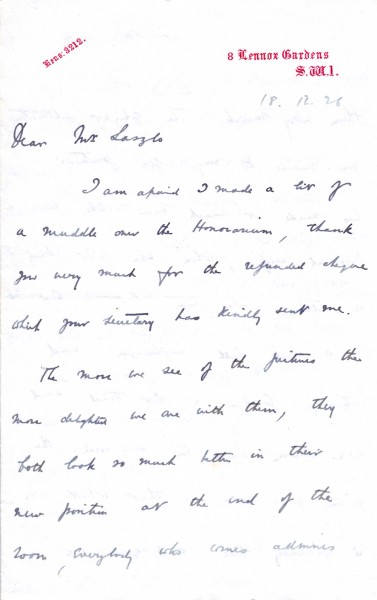 Kens: 3212.
8 Lennox Gardens
S.W.1.
18. 12. 26
Dear Mr Laszlo
I am afraid I made a bit of
a muddle over the Honorarium, thank
you very much for the refunded cheque
which your secretary has kindly sent me.
The more we see of the pictures the
more delighted we are with them, they
both look so much better in their
new position at the end of the
room, everybody who comes admires